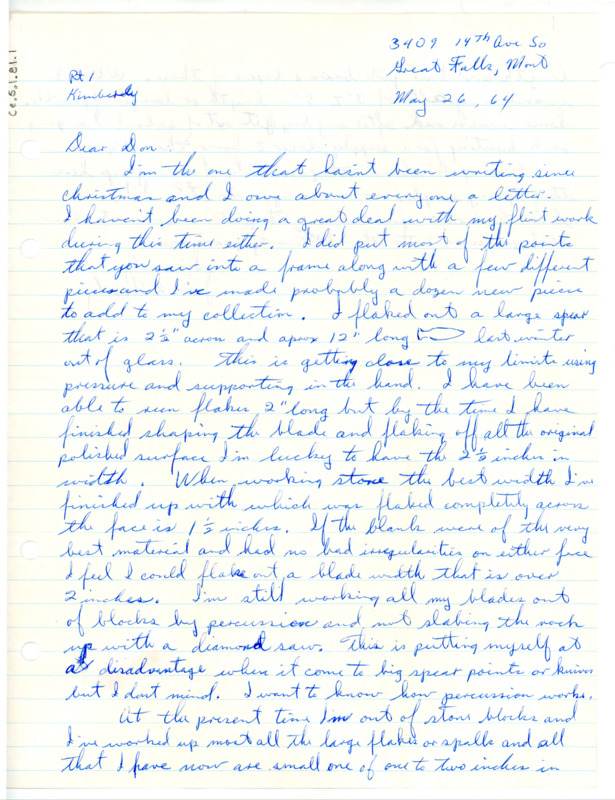 3409 14th Ave So
Great Falls, Mont
May 26, 64
Ce.5.1.81.1
Rt 1
Kimberly
Dear Don
I'm the one that hasn't been writing since
christmas and I owe about everyone a letter.
I haven't been doing a great deal with my flint work
during this time either. I did put most of the points
that you saw into a frame along with a few different
pieces and I've made probably a dozen new piece
to add to my collection. I flaked out a large spear
that is 2½" across and apox 12" long last winter
out of glass. This is getting close to my limits using
pressure and supporting in the hand. I have been
able to run flakes 2" long but by the time I have
finished shaping the blade and flaking off all the original
polished surface I'm lucky to have the 2½ inches in
width. When working stone the best width I've
finished up with which was flaked completly across
the face is 1½ inches. If the blank were of the very
best material and had no bad irregularities on either face
I feel I could flake out a blade width that is over
2 inches. I'm still working all my blades out
of blocks by percussion and not slabing the rock
up with a diamond saw. This is putting myself at
a disadvantage when it come to big spear points or knives
but I don't mind. I want to know how percussion works.
At the present time I'm out of stone blocks and
I've worked up most all the large flakes or spalls and all
that I have now are small one of one to two inches in